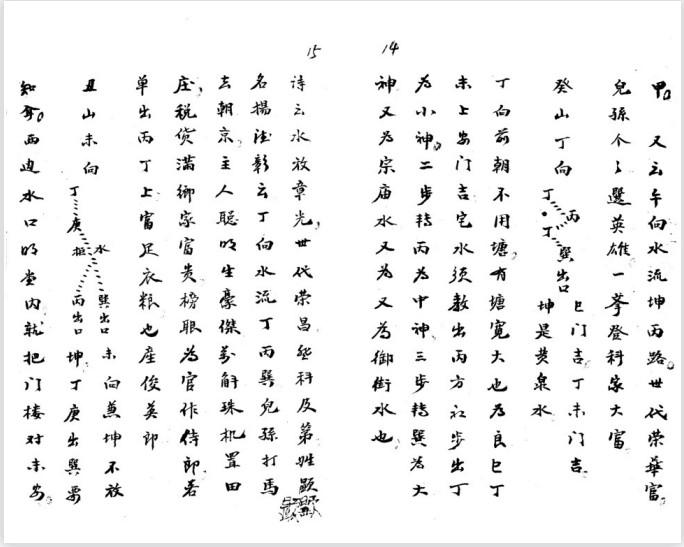 14
甲。又云午向水流坤丙路。世代荣華富。
兒孫个々選英雄一 登科家大富
癸山丁向
丁
丙
丁
巽出口
巳门吉丁未门吉
坤是黄泉水
丁向前朝不用塘,有塘寬大也为良巳丁
未上安门吉宅水须教出丙方初步出丁
为小神。二步转丙为中神三步转巽为大
神又为宗庙水又为又為御街水也
15
诗云水放章光,世代荣昌登科及第姓顕
名揚 彰云丁向水流丁丙巽兒孫打馬
去朝京。主人聪明生豪傑萬斛珠机置田
庄,税货滿鄉家富贵榜眼为官作侍郎若
单出丙丁上富足衣粮也產俊英郎
丑山未向
丁
庚
水
巽出口
丙出口
未向 坤不放
坤丁庚出巽要
知 。西边水口明堂内就把门楼对未安。